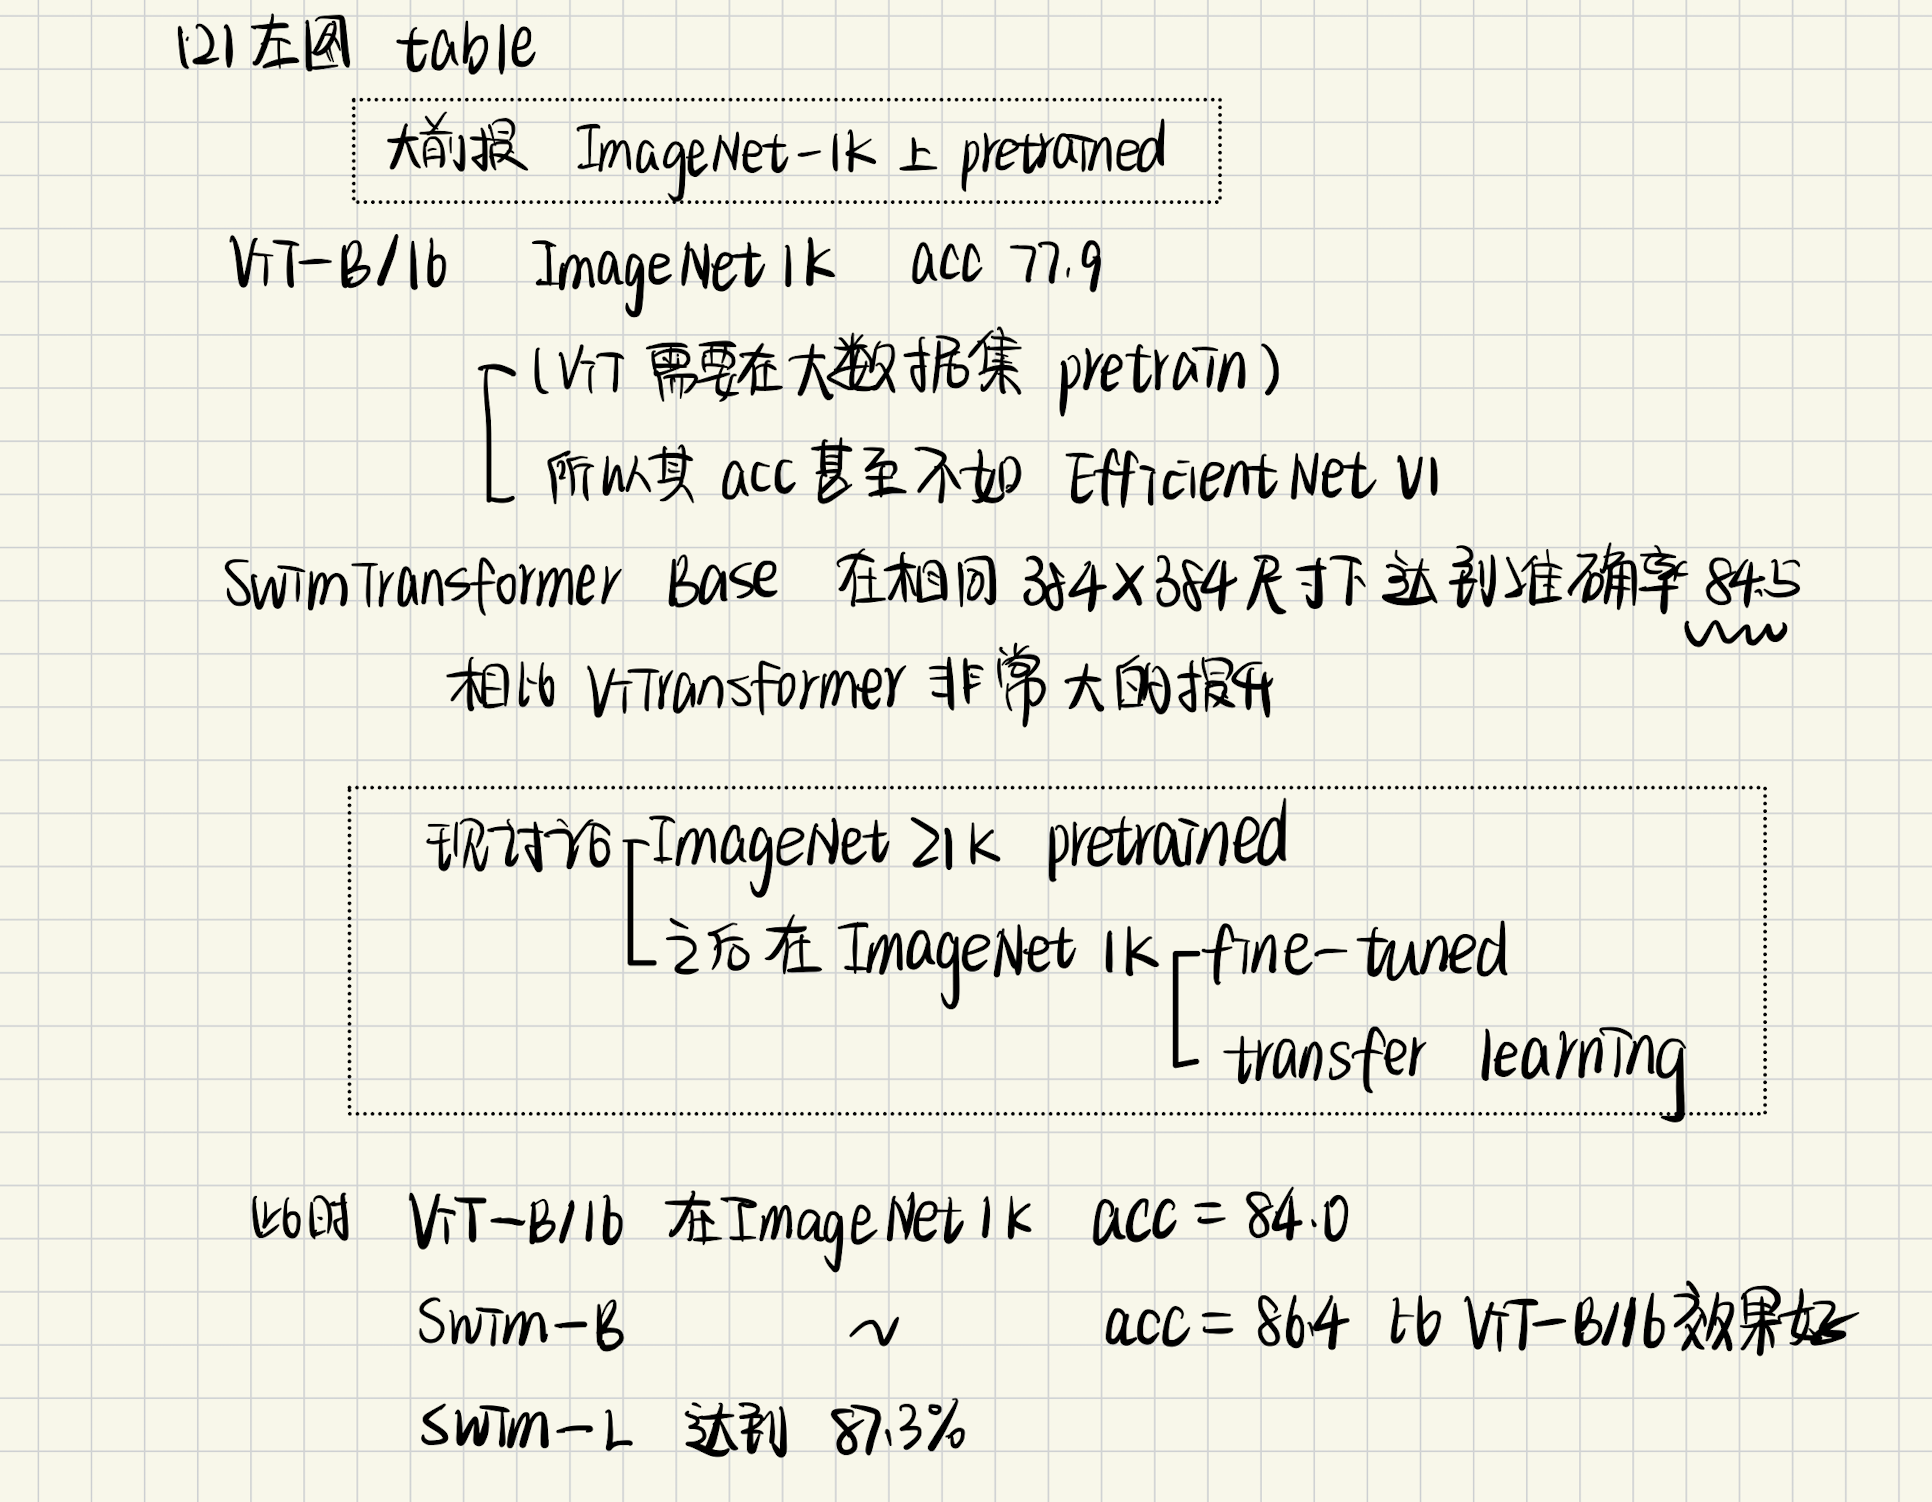 (2) 左图 table
大前提 ImageNet-1K 上 pretrained
ViT-B/16 ImageNet 1K acc 77.9
(ViT 需要在大数据集 pretrain)
所以其 acc 甚至不如 EfficientNet V1
SwimTransformer Base 在相同 384×384 尺寸下达到准确率 84.5
相比 ViTransformer 非常大的提升
现讨论 ImageNet 21K pretrained
之后在 ImageNet 1K fine-tuned
transfer learning
此时 ViT-B/16 在 ImageNet 1K acc = 84.0
Swim-B ~ acc = 86.4 比 ViT-B/16 效果好
Swim-L 达到 87.3%